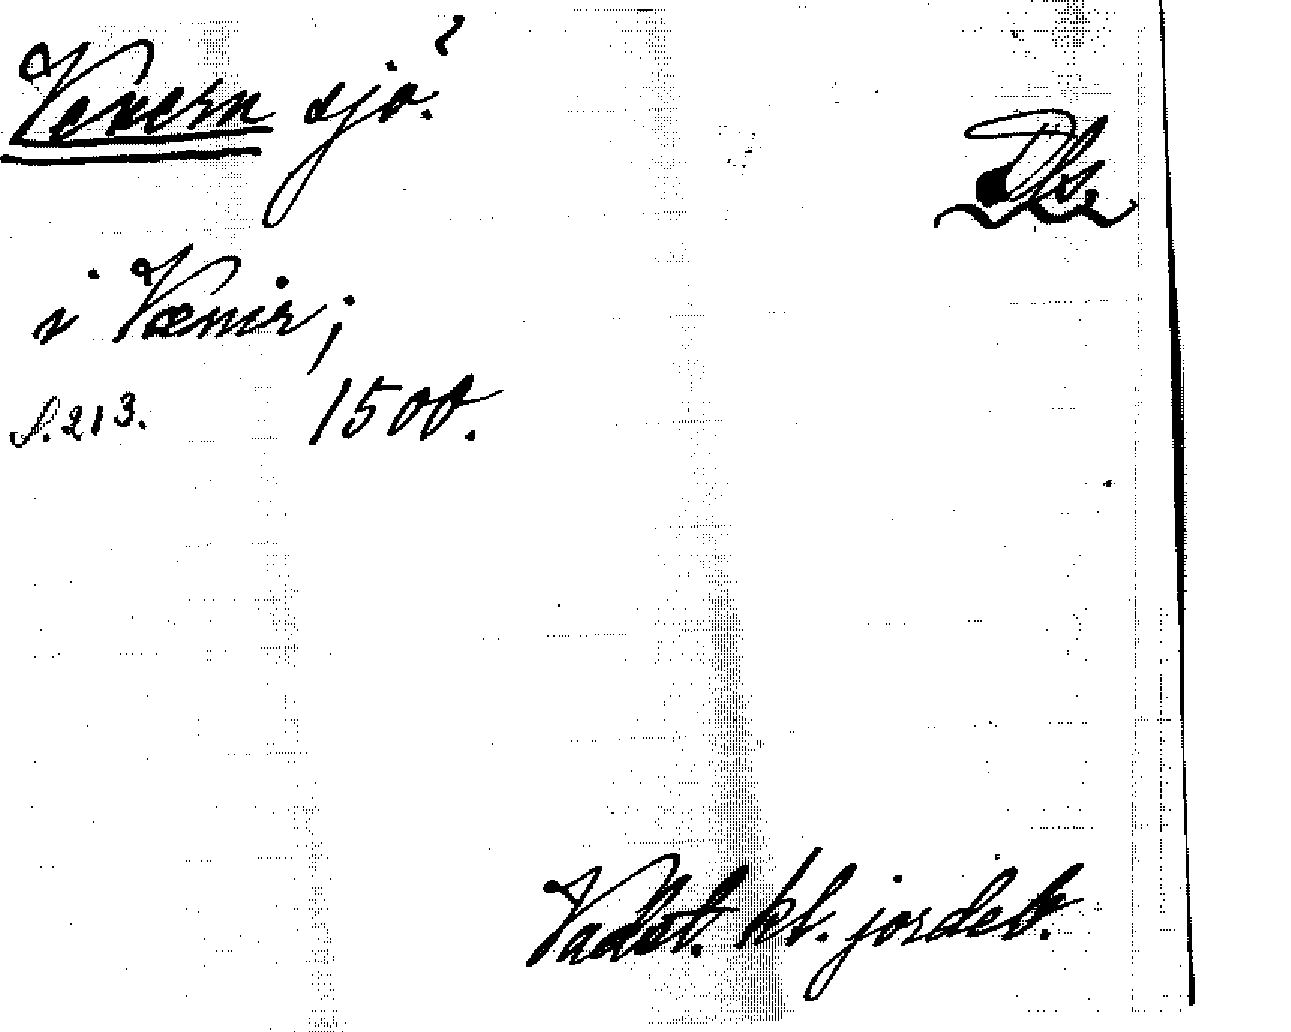 Venern sjö? Dls
i Vænir;
s. 213. 1500.
Vadst. kl. jordeb.